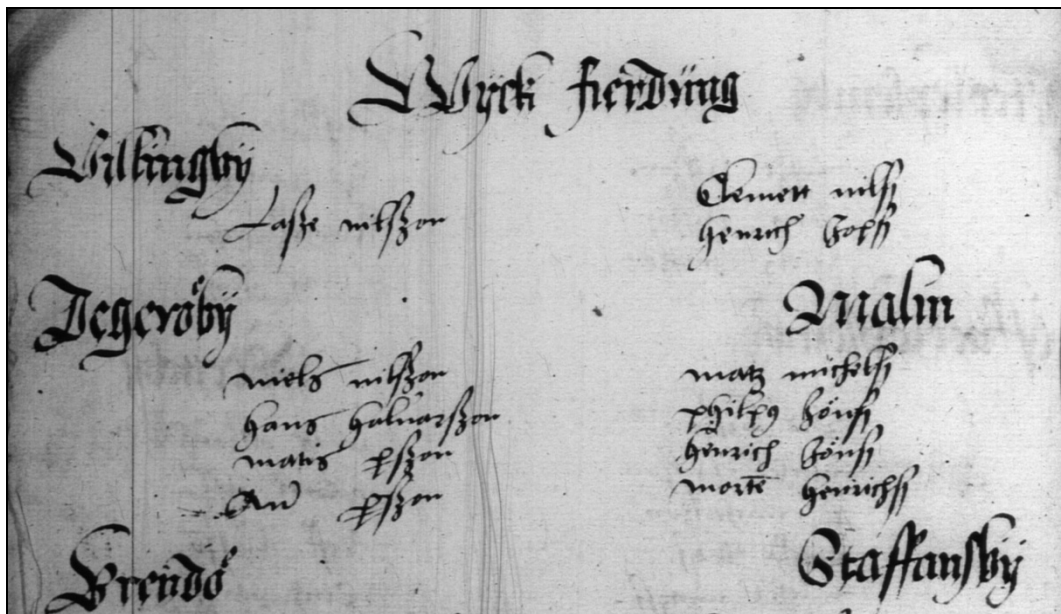 Wyck fierdung
Villingby
Lasse nilsszon
Degeröby
niels nilsszon
hans haluarsszon
matis psszon
And psszon
Brendö
Clemett nilss
henrich
Malin
matz michelss
philpus Jönss
henrich Jönss
morte henrichss
Staffansby